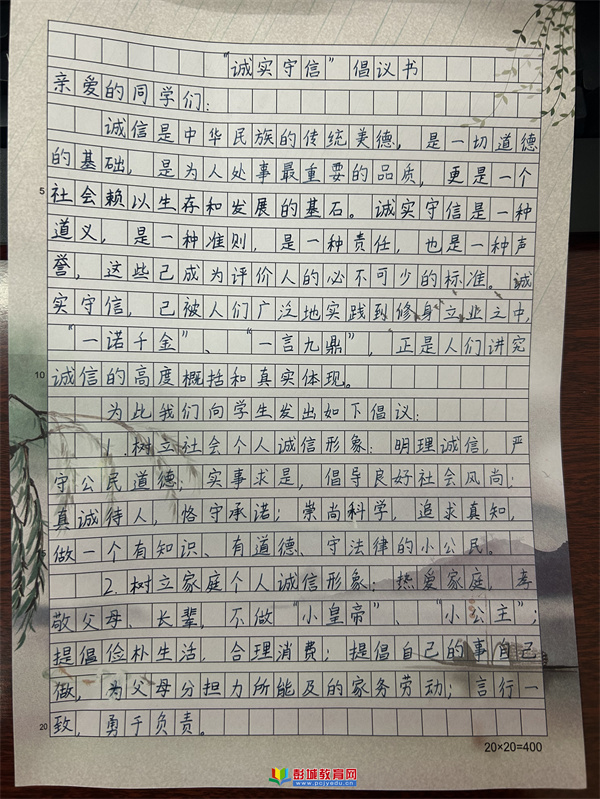 “诚实守信”倡议书
亲爱的同学们：
诚信是中华民族的传统美德，是一切道德
的基础，是为人处事最重要的品质，更是一个
5
社会赖以生存和发展的基石。诚实守信是一种
道义，是一种准则，是一种责任，也是一种声
誉，这些已成为评价人的必不可少的标准。诚
实守信，已被人们广泛地实践到修身立业之中，
“一诺千金”、“一言九鼎”，正是人们讲究
10
诚信的高度概括和真实体现。
为此我们向学生发出如下倡议：
1.树立社会个人诚信形象：明理诚信，严
守公民道德；实事求是，倡导良好社会风尚；
真诚待人，恪守承诺；崇尚科学，追求真知，
做一个有知识、有道德、守法律的小公民。
2.树立家庭个人诚信形象：热爱家庭，孝
敬父母、长辈，不做“小皇帝”、“小公主”；
提倡俭朴生活，合理消费；提倡自己的事自己
做，为父母分担力所能及的家务劳动；言行一
20
致，勇于负责。
20×20=400
彭城教育网
www.pcjyedu.cn